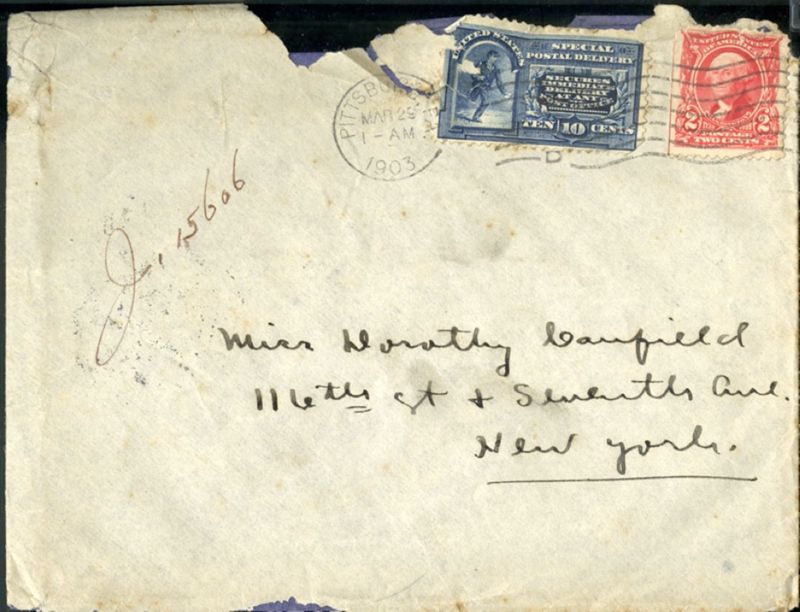 UNITED STATES
SPECIAL
POSTAL DELIVERY
SECURES
IMMEDIATE
DELIVERY
AT ANY
POST OFFICE
TEN 10 CENTS
UNITED STATES
OF AMERICA
2 2
POSTAGE
TWO CENTS
PITTSBURG
MAR 29
1-AM
1903
D
15606
Miss Dorothy Canfield
116th st & Seventh Ave.
New York.